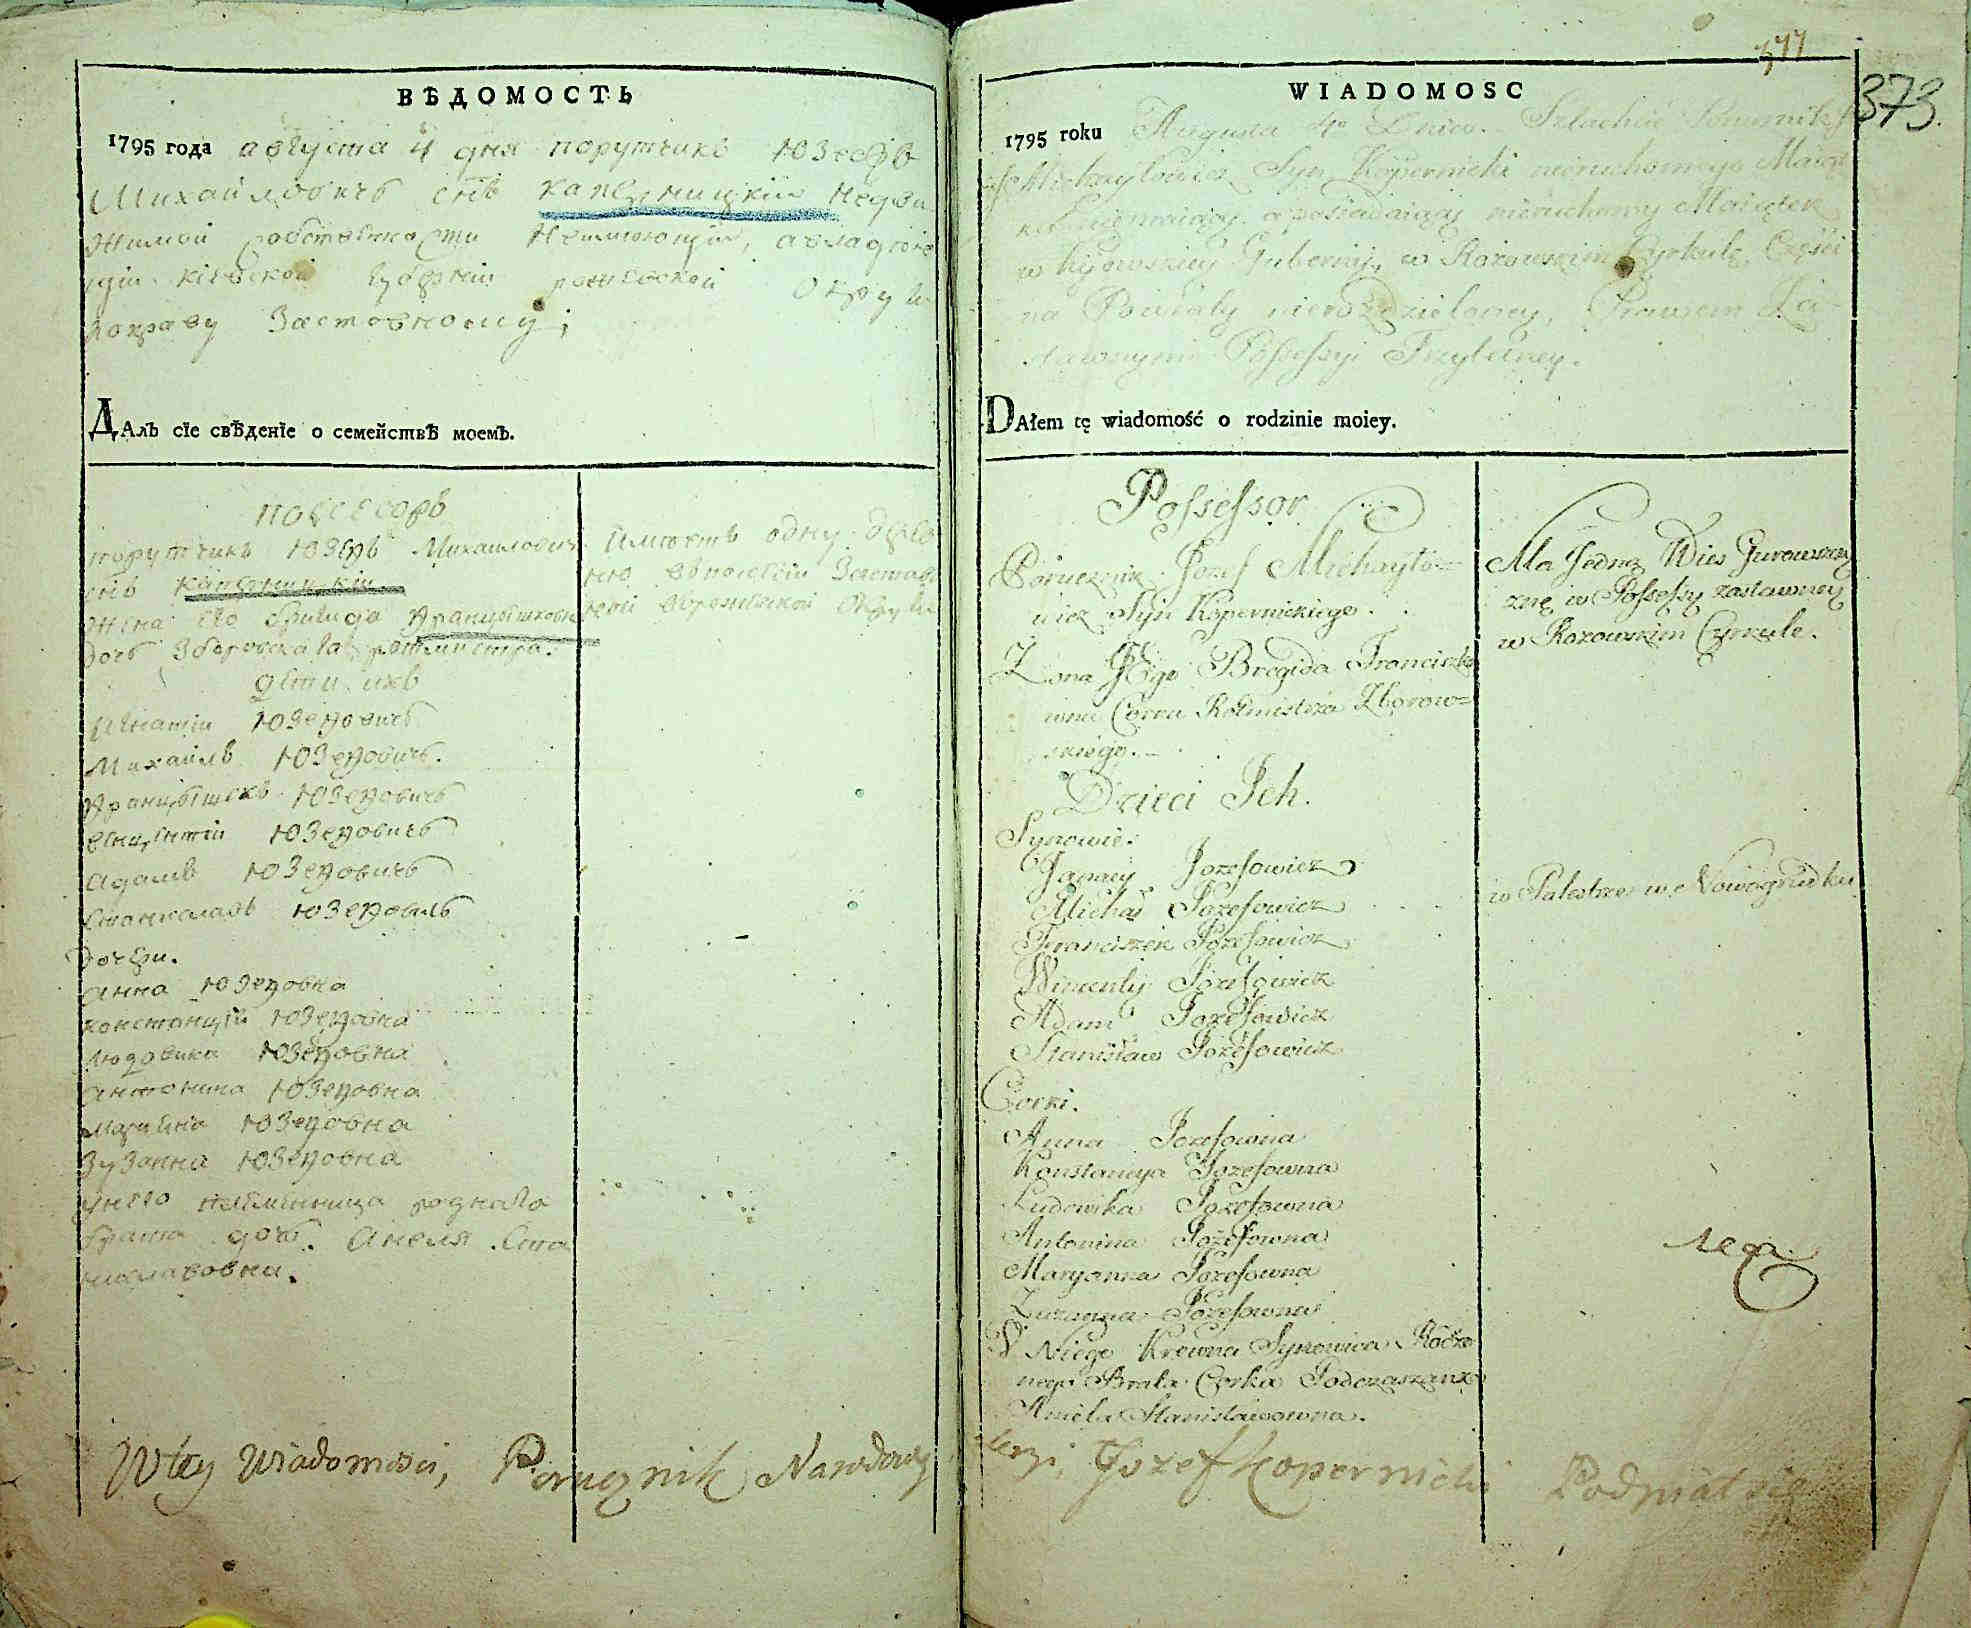 ВѢДОМОСТЬ
1795 года августа 4 дня порутчикъ Юзефъ
Михайловичъ снъ Каперницкiи недви
жимой собственности неимеющiи, авладею
щiи кiевской губернiи рожевской округи
поправу заставному;
Далъ сїе свѣденїе о семействѣ моемъ.
посесоръ
порутчикъ Юзефъ Михаиловичъ
снъ Каперницкiи
жена его Бригида Францышковна
дочь Зборовскаго ротмистра.
дѣти ихъ
Игнатiи Юзефовичъ
Михаилъ Юзефовичъ.
Францышекъ Юзефовичъ
Винцентiи Юзефовичъ
Адамъ Юзефовичъ
Станиславъ Юзефовичъ
дочери.
Анна Юзефовна
Констанцiя Юзефовна
Людовика Юзефовна
Антонина Юзефовна
Марiяна Юзефовна
Зузанна Юзефовна
унего племянница роднаго
брата дочь. Анеля Ста
ниславовна.
Имеетъ одну дерев
ню впосесiи застав
ной врожевской округи
W tey Wiadomości, Porucznik Narodowy
377
373.
WIADOMOSC
1795 roku Augusta 4o Dnia. Szlachcic Porucznik
Michayłowicz Syn Kopernicki nieruchomego Maiąt
ku niemaiący, a posiadaiący nieruchomy Maiątek
w Kijowskiey Gubernij, w Rożowskim Cyrkule, Części
na Powiaty nierozdzieloney, Prawem Za-
stawnym Possessyi Trzyletney.
DAłem tę wiadomość o rodzinie moiey.
Possessor
Porucznik Jozef Michayło=
wicz Syn Kopernickiego.
Zona Jego Brygida Franciszko
wna Corka Rotmistrza Zborow=
skiego.
Dzieci Jch.
Synowie:
Jgnacy Jozefowicz
Michał Jozefowicz
Franciszek Jozefowicz
Wincenty Jozefowicz
Adam Jozefowicz
Stanisław Jozefowicz
Corki.
Anna Jozefowna
Konstancya Jozefowna
Ludowika Jozefowna
Antonina Jozefowna
Maryanna Jozefowna
Zuzanna Jozefowna
U Niego Krewna Synowica Rodzo
nego Brata Corka Podczaszanka
Aniela Stanisławowna.
Ma Jedną Wies
w Possessyi zastawney
w Rozowskim Cyrkule.
w Palestrze w Nowogrudku
Jozef Kopernicki Podpisał się